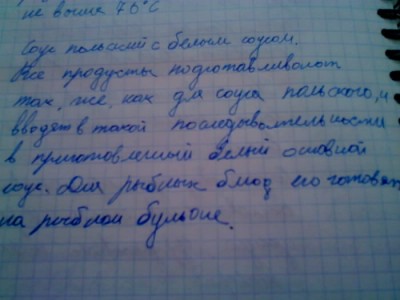 не выше 70°С
Соус польский с белым соусом.
Все продукты подготавливают
так же, как для соуса польского, и
вводят в такой последовательности
в приготовленный белый основной
соус. Для рыбных блюд его готовят
на рыбном бульоне.